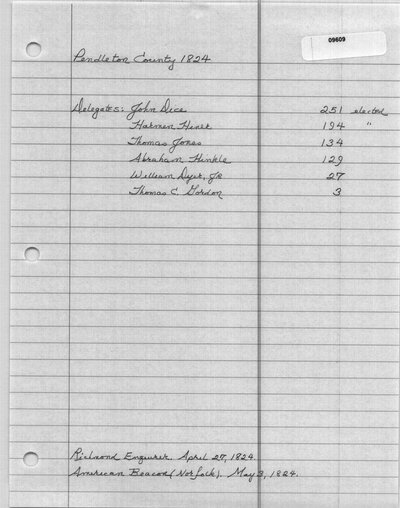 09609
Pendleton County 1824
Delegates: John Dice 251 elected
Harmon Hiner 194 "
Thomas Jones 134
Abraham Hinkle 129
William Dyer, Jr 27
Thomas C. Gordon 3
Richmond Enquirer. April 27, 1824.
American Beacon (Norfolk). May 3, 1824.